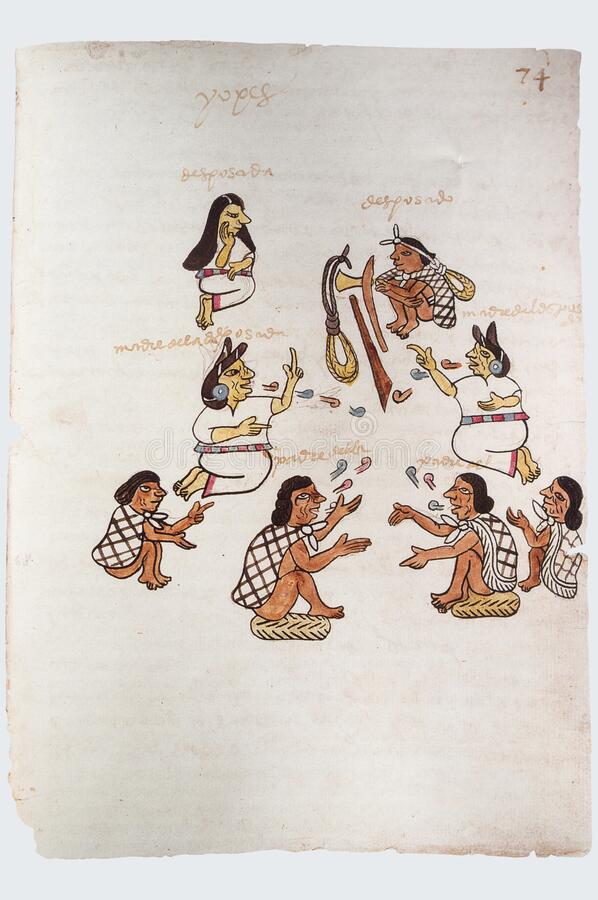 74
yopes
desposada
desposado
madre de la desposada
madre del despos
padre della
padre del
dreamstime